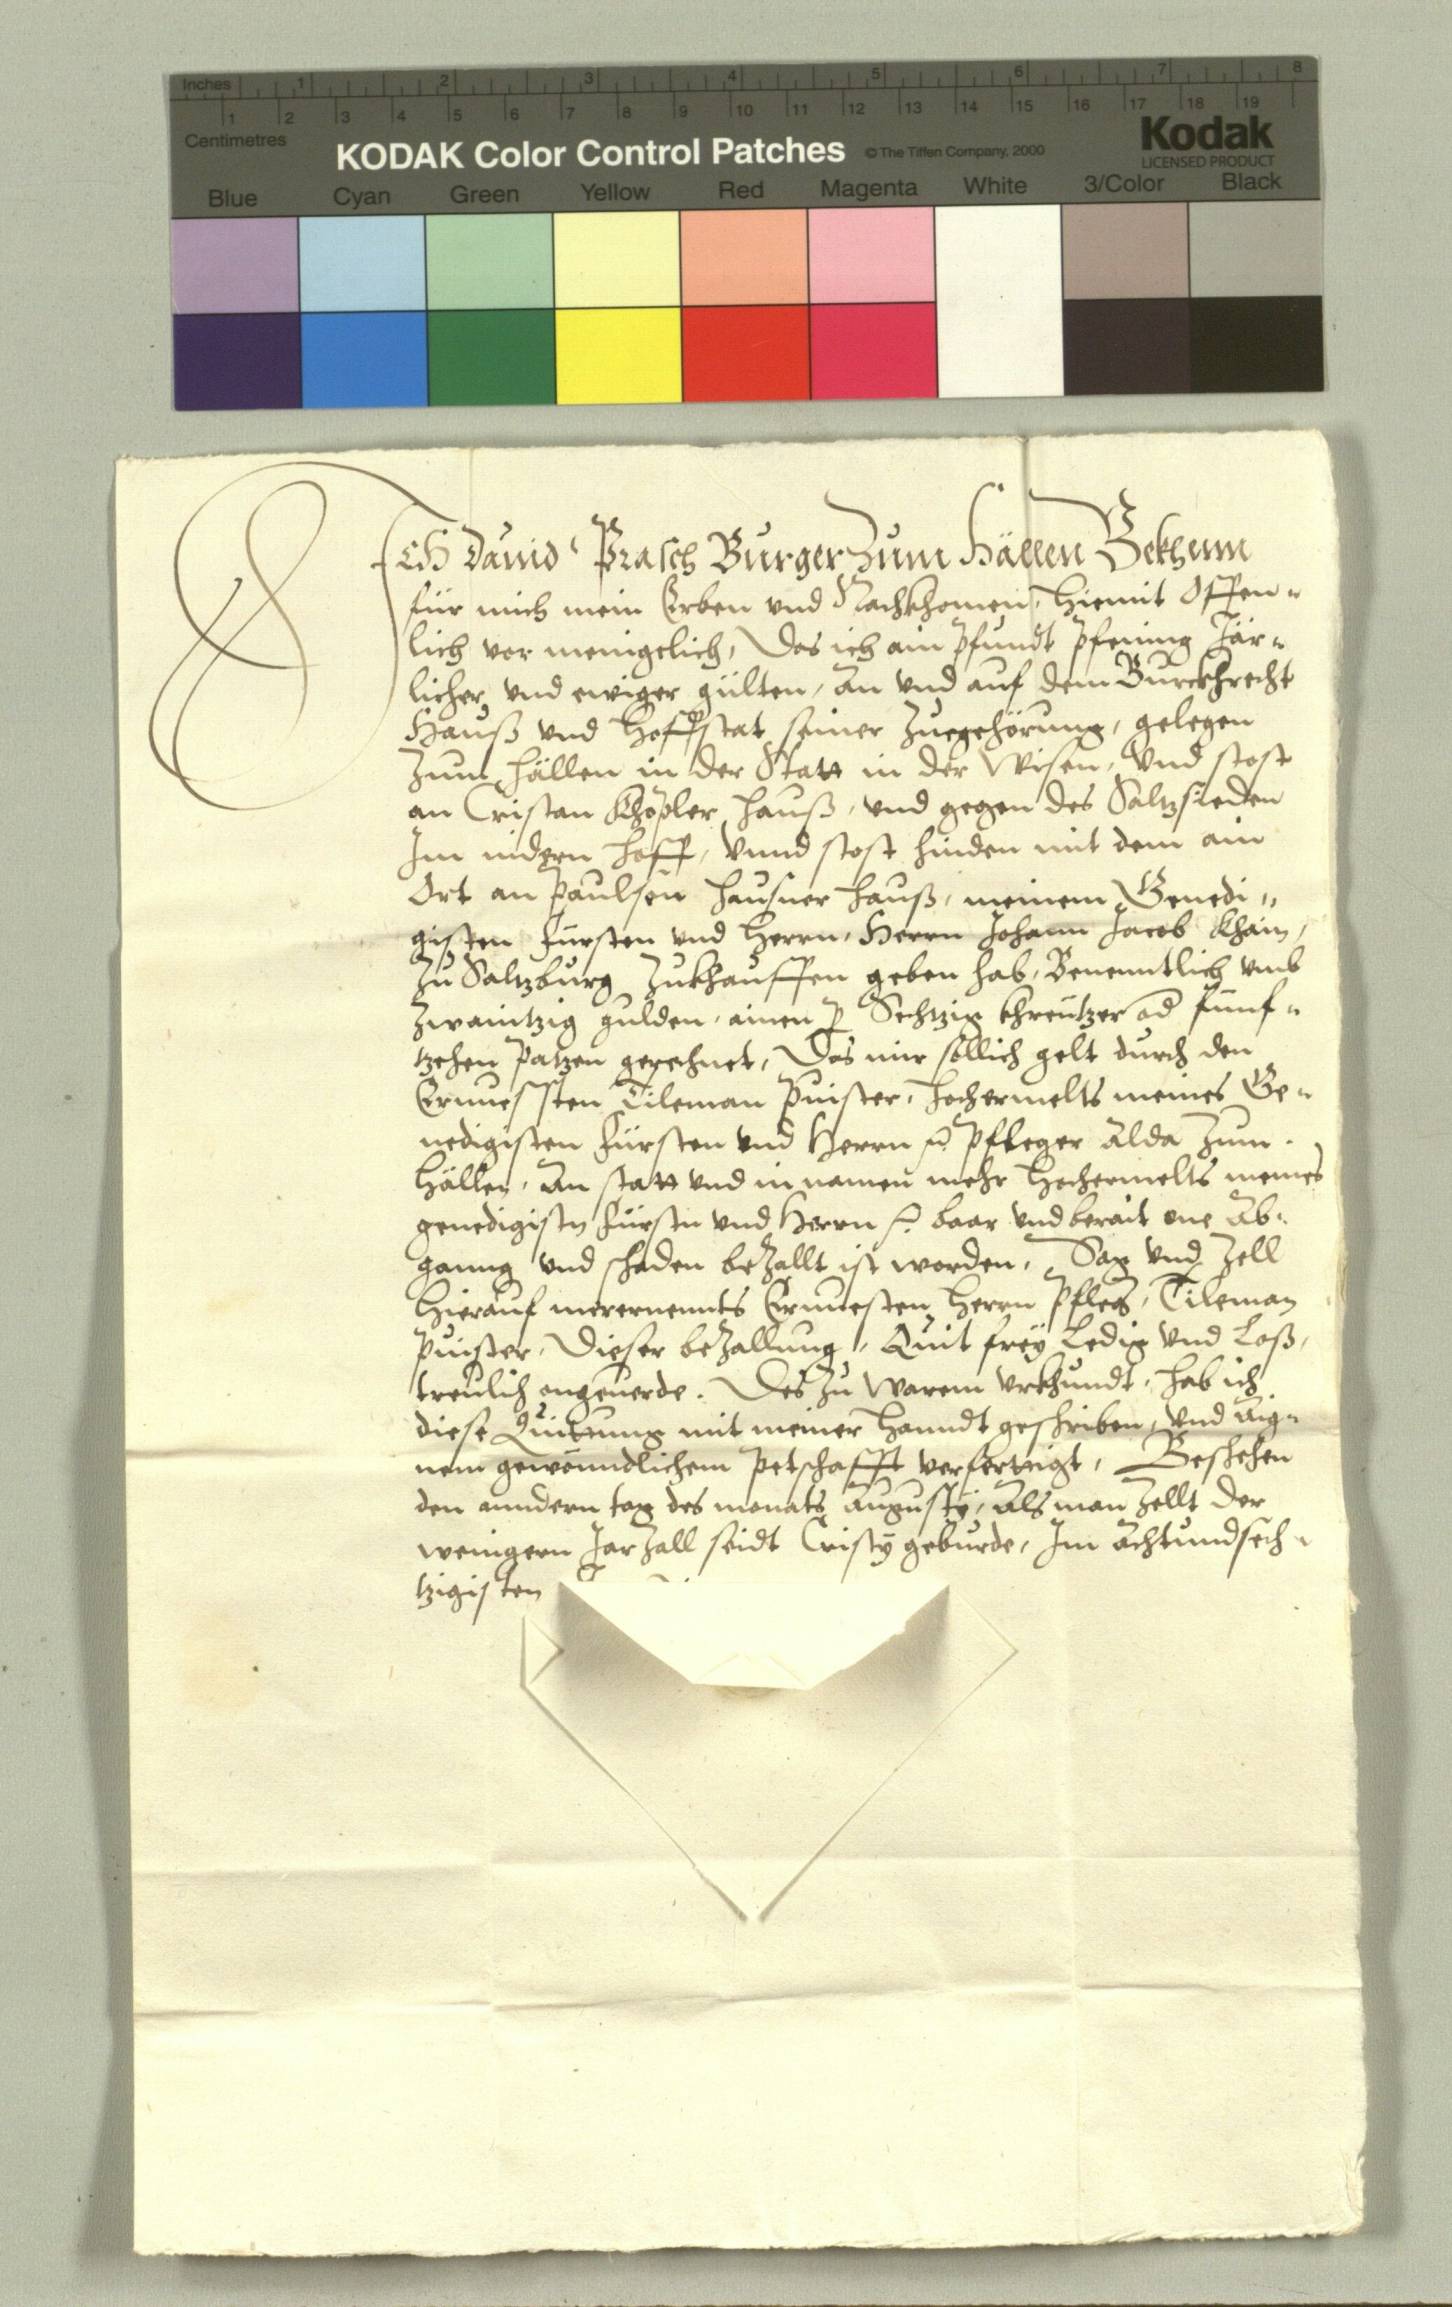 Inches 1 2 3 4 5 6 7 8
1 2 3 4 5 6 7 8 9 10 11 12 13 14 15 16 17 18 19
Centimetres
KODAK Color Control Patches © The Tiffen Company, 2000 Kodak
LICENSED PRODUCT
Blue Cyan Green Yellow Red Magenta White 3/Color Black
ICH Dauid Prasch Burger Zum Hällen Bekhenn
für mich mein Erben vnd Nachkhomen, hiemit Offen-
lich vor menigelich, Das ich ain pfundt pfening Jär-
licher vnd ewiger gülten, An vnd auf dem Burckhrecht
Hauß vnd Hoffstat seiner Zuegehörung, gelegen
Zum Hällen in der Statt in der Wisen, Vnd stost
an Cristan hauß, vnd gegen des Saltzsieden
Im nidern hoff, Vnnd stost hinden mit dem ain
Ort an Paulsen Hausner hauß, meinem Genedi-
gisten Fürsten vnd Herrn, Herrn Johann Jacob Khuin,
Zu Saltzburg Zukhauffen geben hab, Benenntlich vmb
Zwaintzig gulden, ainen p Sechtzig khreutzer od funf-
tzehen Patzen gerechnet, Das mir söllich gelt durch den
Ernuessten Tileman hochermelts meines Ge-
nedigisten Fürsten vnd Herrn Pfleger Alda Zum
Hällen, An statt vnd in namen mehr hochermelts meines
genedigistn Fürstn vnd Herrn baar vnd berait one Ab-
ganng vnd schaden beZallt ist worden, Sag vnd Zell
hierauf merernennts Ernuesten Herrn Pfleg, Tileman
Dieser beZallung, Quit frey Ledig vnd Loß,
treulich ongeuerde. Des Zu Warem vrkhundt, hab ich
diese Quittung mit meiner hanndt geschriben, vnd aig-
nem gewonndlichem petschafft verferttigt, Beschehen
den anndern tag des monats Augusty, Als man Zellt der
wenigern JarZall seidt Cristy geburde, Im Achtundsech-
tzigisten